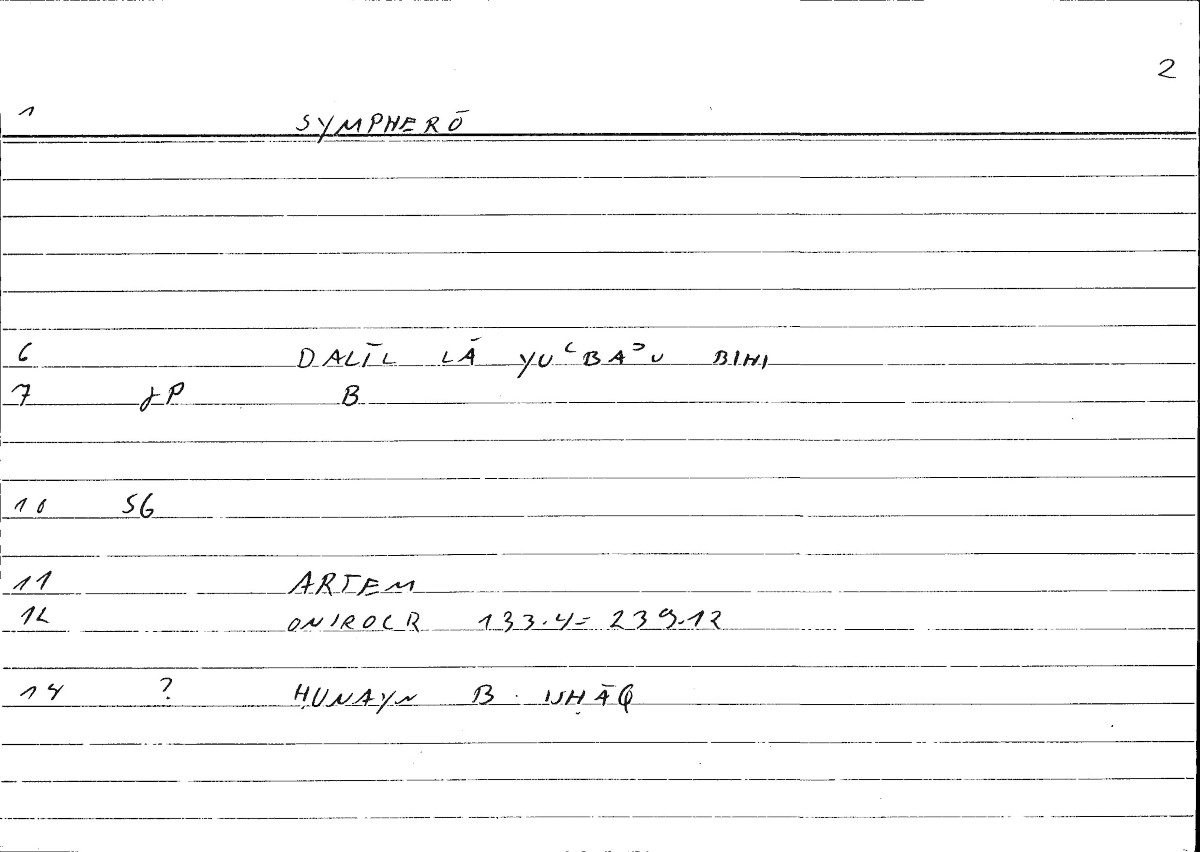 2
1 SYMPHERŌ
6 DALĪL LĀ YUʿBAʾU BIHI
7 JP B
10 SG
11 ARTEM
12 ONIROCR 133.4= 239.12
14 ? ḤUNAYN B. ISḤĀQ